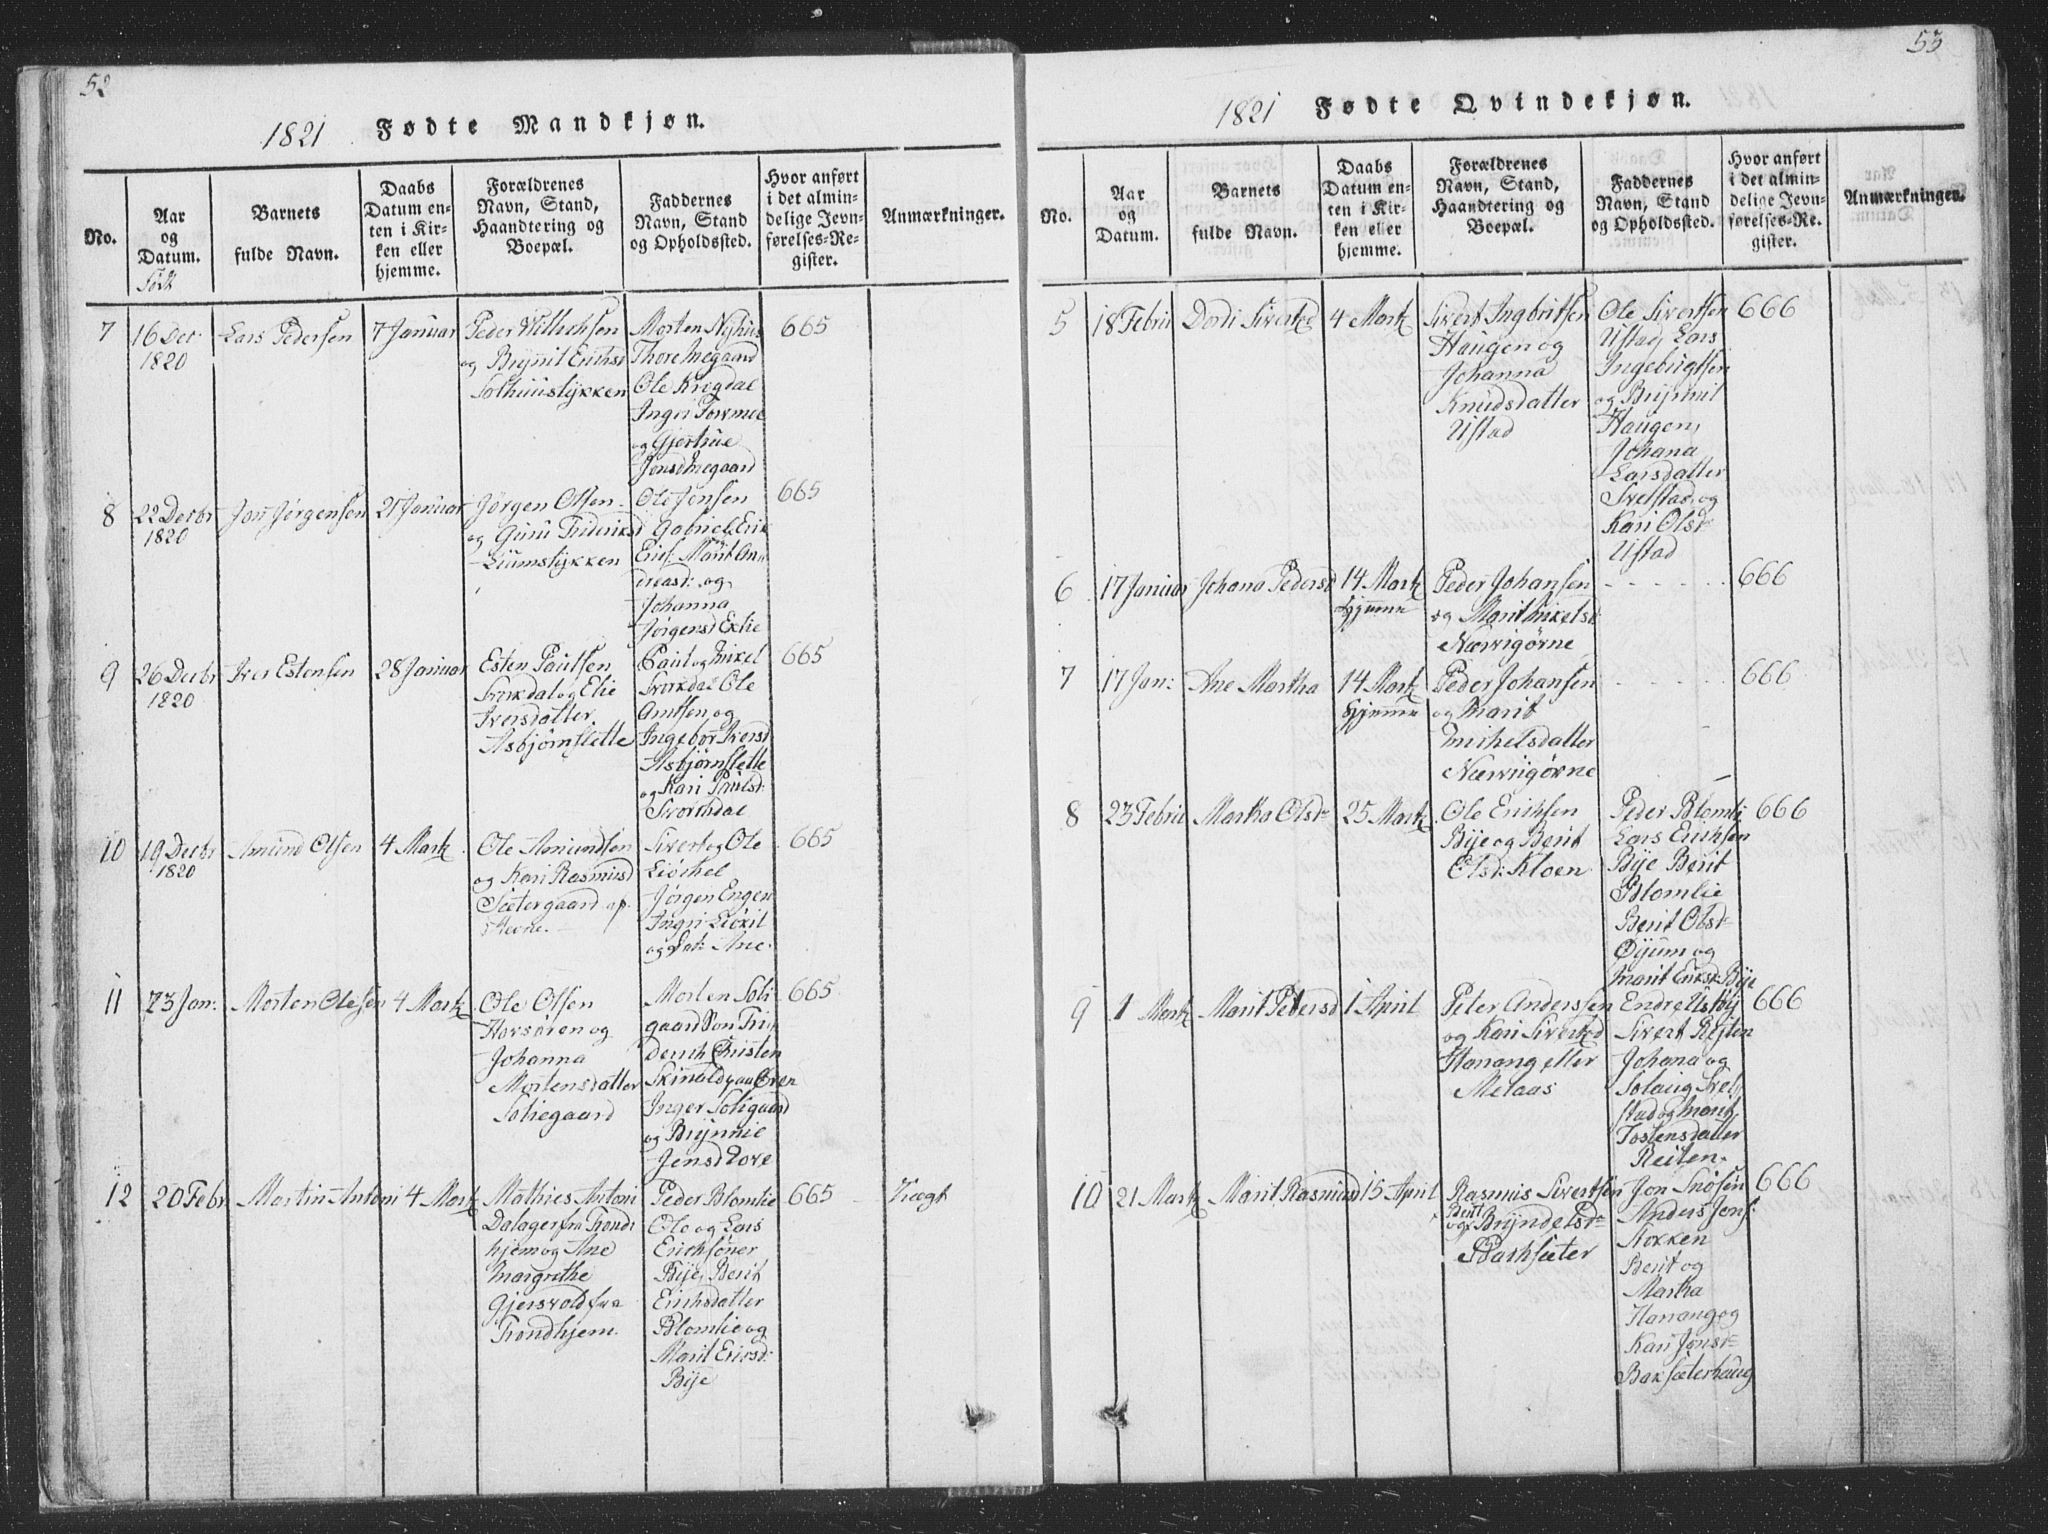 52
1821 Fødte Mandkjøn.
No.
Aar
og
Datum.
Født
Barnets
fulde Navn.
Daabs
Datum en-
ten i Kir-
ken eller
hjemme.
Forældrenes
Navn, Stand,
Haandtering og
Boepæl.
Faddernes
Navn, Stand
og Opholdssted.
Hvor anført
i det almin-
delige Jevn-
førelses-Re-
gister.
Anmærkninger.
7
16 Dec
1820
Lars Pedersen
7 Januar
Peder
og Brynnil Erichsd
Solhuustykken
Morten Nyhuus
Thore Megaard
Ole Krogdal
Inger
og Gjertrue
Jonsd Megaard
665
8
22 Decbr
1820
Jon Jørgensen
21 Januar
Jørgen Olsen
og Guru Frederiksd
Liumstykken
Ole Jensen
Gabriel Erik
Erics: Marit An
dreasd: og
Johanna
Jørgensd Exlie
665
9
26 Decbr
1820
Iver Estensen
28 Januar
Esten Paulsen
Svokdal og Elie
Iversdatter
Asbjørnslette
Paul og Mikel
Svokdal Ole
Amtsen og
Ingebor Iversd
Asbjørnslette
og Kari Paulsd:
Svorkdal
665
10
19 Decbr
1820
Amund Olsen
4 Martz
Ole Amundsen
og Kari Rasmusd
Sætergaard
Sivert og Ole
Jørgen Engen
Ingri
og Ane
665
11
23 Jan:
Morten Olesen
4 Martz
Ole Olsen
Horsøren og
Johanna
Mortensdatter
Soliegaard
Morten Soli
gaard Søn Fri
derich Christen
Inger Soligaard
og Brynnie
Jensd
665
12
20 Febr
Martin Antoni
4 Martz
Mathies Antoni
Dalager fra Trond
hjem og Ane
Margrethe
Gjersvold fra
Trondhjem
Peder Blomlie
Ole og Lars
Erichsøner
Bije, Berit
Erichsdatter
Blomlie og
Marit Ericsd:
Bije
665
Uægt
53
1821 Fødte Qvindekjøn.
No.
Aar
og
Datum.
Barnets
fulde Navn.
Daabs
Datum en-
ten i Kir-
ken eller
hjemme.
Forældrenes
Navn, Stand,
Haandtering og
Boepæl.
Faddernes
Navn, Stand
og Opholdssted.
Hvor anført
i det almin-
delige Jevn-
førelses-Re-
gister.
Anmærkninger.
5
18 Febru
Dordi Sivertsd
4 Martz
Sivert Ingbritsen
Haugen og
Johanna
Knudsdatter
Ustad
Ole Sivertsen
Ustad, Lars
Ingebrigtsen
og Brynnil
Haugen,
Johana
Larsdatter
Svelstad og
Kari Olsd
Ustad
666
6
17 Januar
Johana Pedersd
14 Martz
Hjemme
Peder Johansen
og Marit Mikelsd
Næverigørne
666
7
17 Jan:
Ane Martha
14 Martz
Hjemme
Peder Johansen
og Marit
Michelsdatter
Næverigørne
666
8
23 Febru
Martha Olsd
25 Martz
Ole Erichsen
Bije og Berit
Olsd: Kloen
Peder Blomli
Lars Erichsen
Bije Berit
Blomlie
Berit Olsd
Øyum og
Marit Ericsd: Bije
666
9
1 Martz
Marit Petersd
1 April
Peter Anderssen
og Kari Sivertsd
Hanang eller
Melaas
Endre Ustøy
Sivert Reiten
Johana og
Solaug Svel
stad og Marit
Tostensdatter
Reiten
666
10
21 Martz
Marit Rasmusd
15 April
Rasmus Sivertsen
og Berit Bryndelsd
Bachsæter
Jon Snøsen
Anders Jons:
Stokken
Berit og
Martha
Hanang og
Kari Jonsd
Baksæterhaug
666